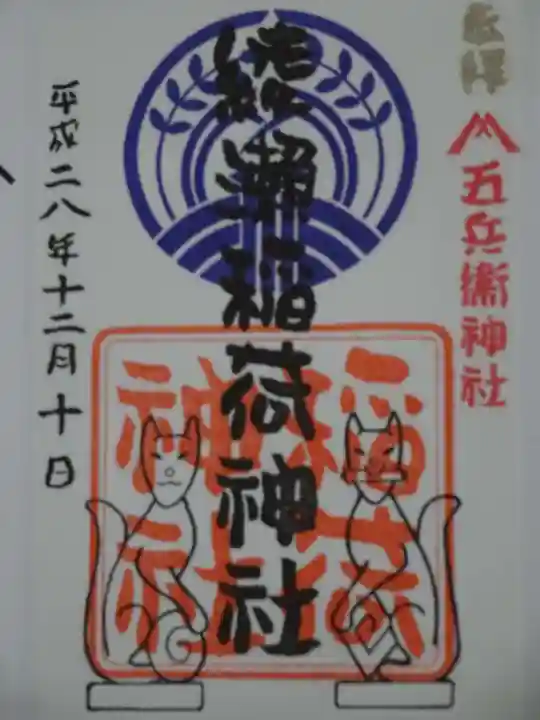 奉拝
五兵衛神社
綾瀬稲荷神社
稲荷
神社
平成二八年十二月十日